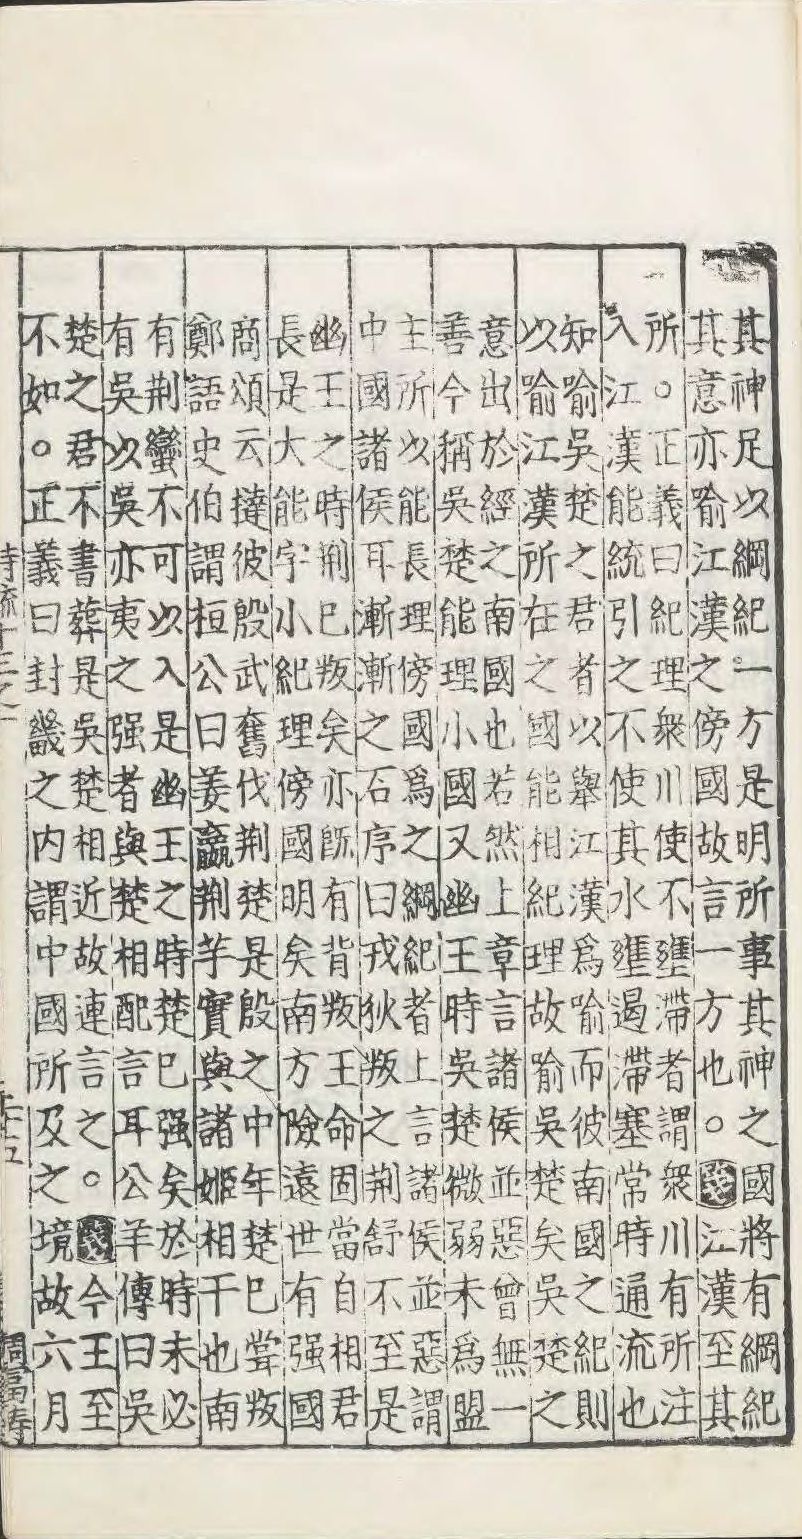 其神足以綱紀一方是明所事其神之國將有綱紀
其意亦喻江漢之傍國故言一方也。箋江漢至其
所。正義曰紀理衆川使不壅滯者謂衆川有所注
入江漢能統引之不使其水壅遏滯塞常時通流也
知喻吳楚之君者以舉江漢爲喻而彼南國之紀則
以喻江漢所在之國能相紀理故喻吳楚矣吳楚之
意出於經之南國也若然上章言諸侯並惡曾無一
善今稱吳楚能理小國又幽王時吳楚微弱未爲盟
主所以能長理傍國爲之綱紀者上言諸侯並惡謂
中國諸侯耳漸漸之石序曰戎狄叛之荆舒不至是
幽王之時荆已叛矣亦旣有背叛王命固當自相君
長是大能字小紀理傍國明矣南方險遠世有强國
商頌云撻彼殷武奮伐荆楚是殷之中年楚已嘗叛
鄭語史伯謂桓公曰姜嬴荆芉實與諸姬相干也南
有荆蠻不可以入是幽王之時楚已强矣於時未必
有吳以吳亦夷之强者與楚相配言耳公羊傳曰吳
楚之君不書葬是吳楚相近故連言之。箋今王至
不如。正義曰封畿之内謂中國所及之境故六月
詩疏十三之一